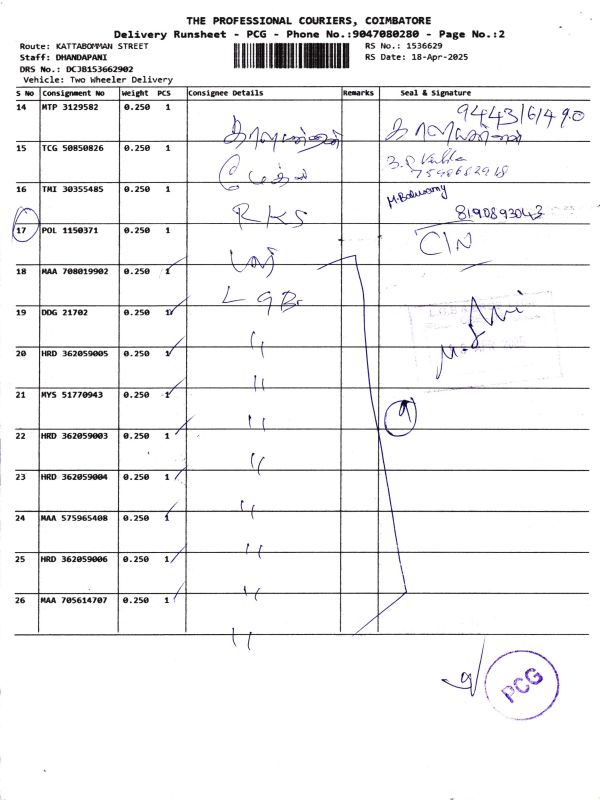 THE PROFESSIONAL COURIERS, COIMBATORE
Delivery Runsheet - PCG - Phone No.:9047080280 - Page No.:2
Route: KATTABOMMAN STREET
RS No.: 1536629
Staff: DHANDAPANI
RS Date: 18-Apr-2025
DRS No.: DCJB153662902
Vehicle: Two Wheeler Delivery
S No Consignment No Weight PCS Consignee Details Remarks Seal & Signature
14 MTP 3129582 0.250 1
15 TCG 50850826 0.250 1
7598682918
16 TMI 30355485 0.250 1
RKS
8190893043
17 POL 1150371 0.250 1
C/N
18 MAA 708019902 0.250 1
LGB
19 DDG 21702 0.250 1
"
20 HRD 362059005 0.250 1
"
21 MYS 51770943 0.250 1
"
22 HRD 362059003 0.250 1
"
23 HRD 362059004 0.250 1
"
24 MAA 575965408 0.250 1
"
25 HRD 362059006 0.250 1
"
26 MAA 705614707 0.250 1
"
9/
PCG